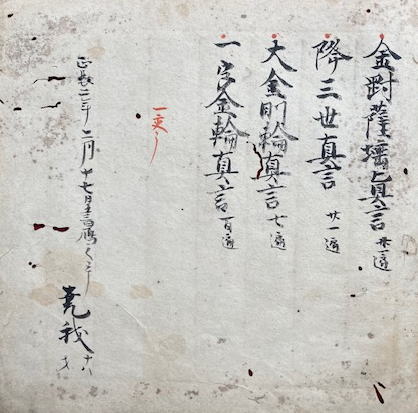 金剛薩埵真言 廿一遍
降三世真言 廿一遍
大金剛輪真言 七遍
一字金輪真言 百遍
一交了
正長二年二月十七日書
尭我 十八才